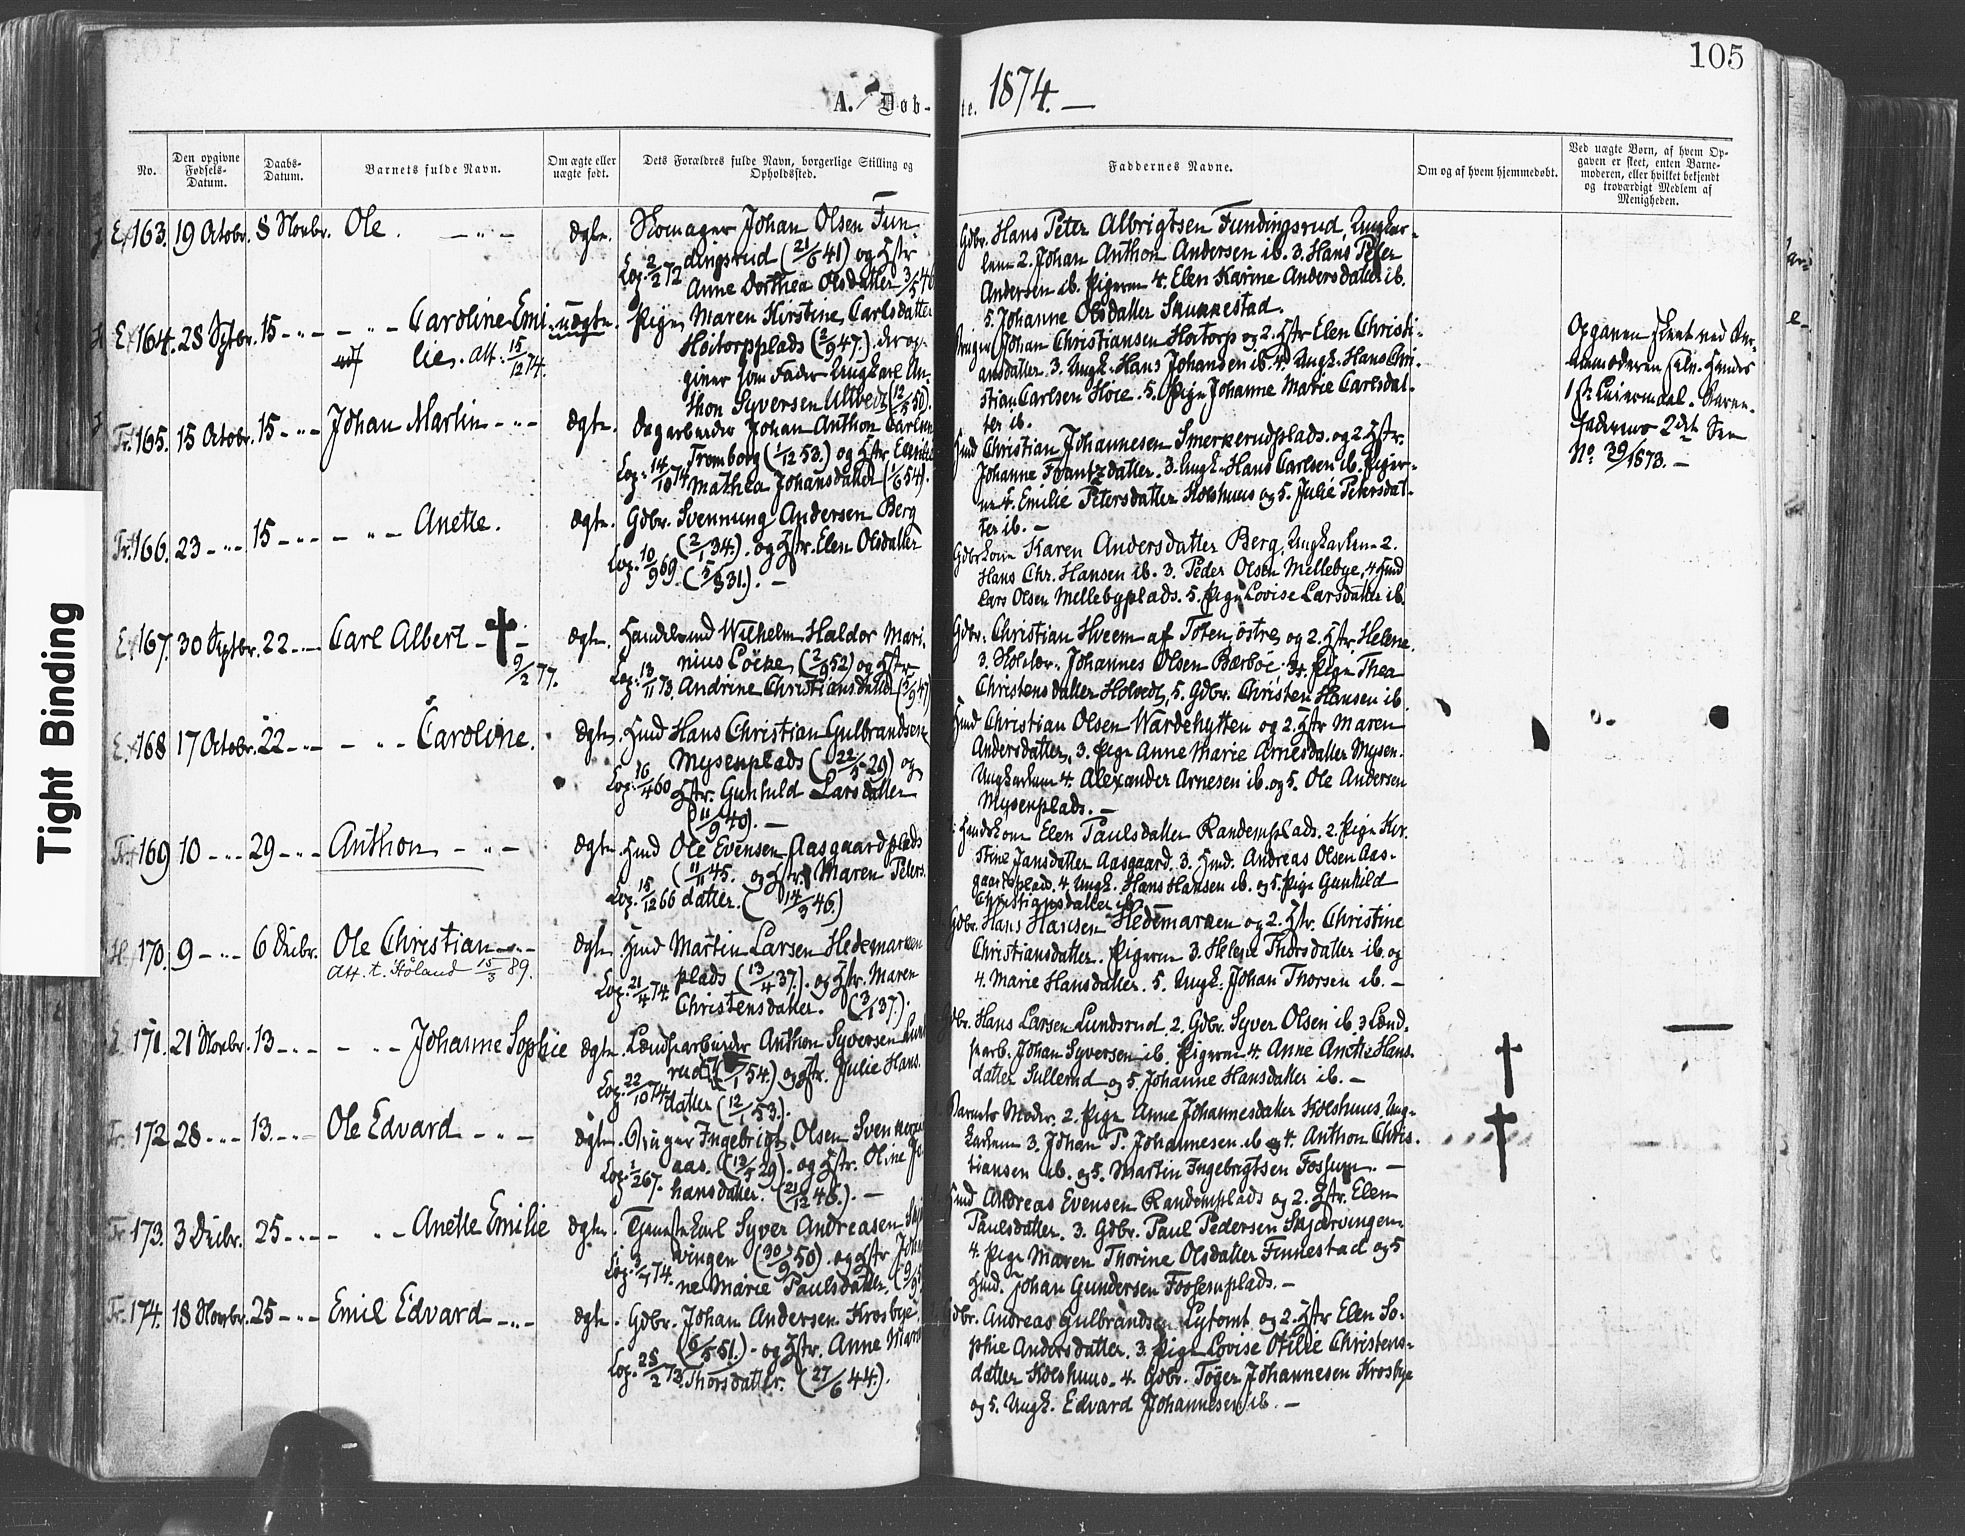 105
A. Døb-
te. 1874. —
No.
Den opgivne Fødsels-Datum.
Daabs-Datum.
Barnets fulde Navn.
Om ægte eller uægte født.
Dets Forældres fulde Navn, borgerlige Stilling og Opholdssted.
Faddernes Navne.
Om og af hvem hjemmedøbt.
Ved uægte Børn, af hvem Op-
gaven er skeet, enten Barne-
moderen, eller hvilket bekjendt
og troværdigt Medlem af
Menigheden.
163. 19 Octobr. 8 Novbr. Ole. — „ — ægte. Skomager Johan Olsen Fun-
dingsrud (21/6 41) og Hstr
Cop. 2/2 72 Anne Dorthea Olsdatter
Gdbr. Hans Peter Albrigtsen Fundingsrud, Ungkar-
lene 2. Johan Anthon Andersen ib. 3. Hans Peter
Andersen ib. Pigerne 4. Elen Karine Andersdatter ib.
5. Johanne Olsdatter Skunnestad.
164. 28 Sptbr. 15 - „ - — „ — Caroline Emi- uægte.
lie. Att. 15/12 74.
Pige Maren Kirstine Carlsdatter
Høitorpplads (2/9 47). der op-
giver som Fader Ungkarl An-
thon Syversen Ultvedt (12/5 50).
(Johan Christiansen Høitorp og 2. Hstr Elen Christi-
ansdatter. 3. Ungk. Hans Johansen ib. 4. Ungk. Hans Chri-
stian Carlsen Hoie. 5. Pige Johanne Marie Carlsdat-
ter ib.
Opgaven skeet ved Bar-
nemoderen selv. Hendes
1ste Leiermaal. Barne-
faderens 2det See
No. 39/1873. —
165. 15 Octobr. 15 - „ - Johan Martin - „ - ægte. Dagarbeider Johan Anthon Carlsen
Tromborg (1/12 53.) og Hstr
Cop. 14/10 74 Mathea Johansdatter (1/6 54).
Hmd Christian Johannesen Smerkerudplads. og 2 Hstr.
Johanne Frantzdatter. 3. Ungk. Hans Carlsen ib. Piger-
ne 4. Emilie Petersdatter Kolshuus og 5. Julie Petersdat-
ter ib. —
166. 23 - „ - 15 - „ - — „ — Anette. ægte. Gdbr. Svennung Andersen Berg
(2/1 34.). og Hstr. Elen Olsdatter
Cop. 10/9 69. (5/8 31.). —
Gdbrkone Karen Andersdatter Berg, Ungkarlene 2.
Hans Chr. Hansen ib. 3. Peder Olsen Mellebye, 4 Hmd
Lars Olsen Mellebyplads. 5. Pige Lovise Larsdatter ib.
167. 30 Septbr. 22 - „ - Carl Albert — ægte.
9/2 77.
Handelsmd Wilhelm Haldor Mari-
nius Löcke (2/9 52) og Hstr
Cop. 13/11 73 Andrine Christiansdatter
Gdbr. Christian Hveem af Toten, østre, og 2. Hstr. Helene.
3. Johannes Olsen Bærbøe, 4. Pige Thea
Christensdatter Holvedt, 5. Gdbr. Christen Hansen ib.
168 17 Octobr. 22 - „ - - „ - Caroline. ægte. Hmd Hans Christian Gulbrandsen
Mysenplads (22/5 29) og
Cop. 16/4 60 Hstr. Gunhild Larsdatter
(11/9 40). —
Hmd Christian Olsen Wardehytten og 2. Hstr Maren
Andersdatter, 3. Pige Anne Marie Arnesdatter Mysen.
Ungkarlene 4. Alexander Arnesen ib. og 5. Ole Andersen
Mysenplads. —
169 10 - „ - 29 - „ - Anthon - „ - ægte. Hmd Ole Evensen Aasgaardplads
(11/11 45. og Hstr. Maren Peters-
Cop. 15/12 66 datter. (14/3 46.)
Hmdskone Elen Paulsdatter Randemplads. 2. Pige Kir-
stine Jansdatter Aasgaard. 3. Hmd. Andreas Olsen Aas-
gaardsplads. 4. Ungk. Hans Hansen ib. og 5. Pige Gunhild
Christiansdatter ib.
170. 9 - „ - 6 Decbr. Ole Christian - „ - ægte
Att. t. Høland 15/3 89.
Hmd Martin Larsen Hedemarken
plads (13/4 37.). og Hstr. Maren
Cop. 21/4 74. Christensdatter. (3/1 37.).
Gdbr. Hans Hansen Hedemarken og 2. Hstr. Christine
Christiansdatter. Pigerne 3. Helene Thorsdatter ib. og
4. Marie Hansdatter. 5. Ungk. Johan Thorsen ib. —
171. 21 Novbr. 13 - „ - - „ - Johanne Sophie ægte. Lændsarbeider Anthon Syversen
54.) og Hstr. Julie Hans-
Cop. 22/10 74. datter (12/1 53.).
Gdbr. Hans Larsen Lundsrud. 2. Gdbr. Syver Olsen ib. 3 Lænd-
sarb. Johan Syversen ib. Pigerne 4. Anne Anette Hans-
datter Sullerud og 5. Johanne Hansdatter ib. —
172 28 - „ - 13. - „ - Ole Edvard - „ - ægte. Bruger Ingebrigt Olsen
aas. (13/5 29). og Hstr. Oline Jo-
Cop. 1/2 67. hansdatter. (21/12 46.). —
Barnets Moder. 2. Pige Anne Johannesdatter Kolshuus, Ung-
karlene 3. Johan P. Johannesen ib og 4. Anthon Chris-
tiansen ib. og 5. Martin Ingebrigtsen Fossum. —
173. 3 Decbr. 25 - „ - - „ - Anette Emilie ægte. Tjenestekarl Syver Andreasen
vingen (30/9 50). og Hstr
Cop. 3/1 74. ne Marie Paulsdatter.
Hmd Andreas Evensen Randemplads og 2. Hstr. Elen
Paulsdatter. 3. Gdbr. Paul Pedersen Skjærvingen.
4. Pige Maren Thorine Olsdatter Finnestad og 5
Hmd. Johan Gundersen Fossumplads. —
174. 18 Novbr. 25 - „ - Emil Edvard - „ - ægte. Gdbr. Johan Andersen Krosbye.
(6/5 51.). og Hstr. Anne
Cop. 25/2 73. Thorsdatter. (27/6 44.).
Gdbr. Andreas Gulbrandsen Lytomt og 2. Hstr Elen So-
phie Andersdatter. 3. Pige Lovise Otilie Christens-
datter Kolshuus. 4. Gdbr. Töger Johannesen Krosbye
og 5. Ungk. Edvard Johannesen ib. —
Tight Binding